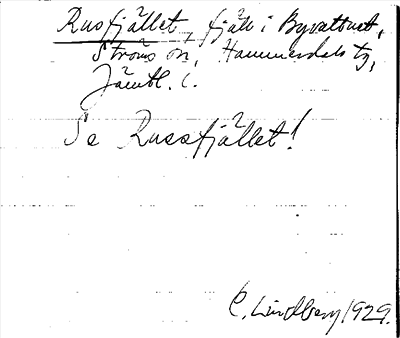 Rusfjället, fjäll i Byvattnet,
Ströms sn, Hammerdals tg,
Jämtl. l.
Se Russfjället!
C. Lindberg 1929.